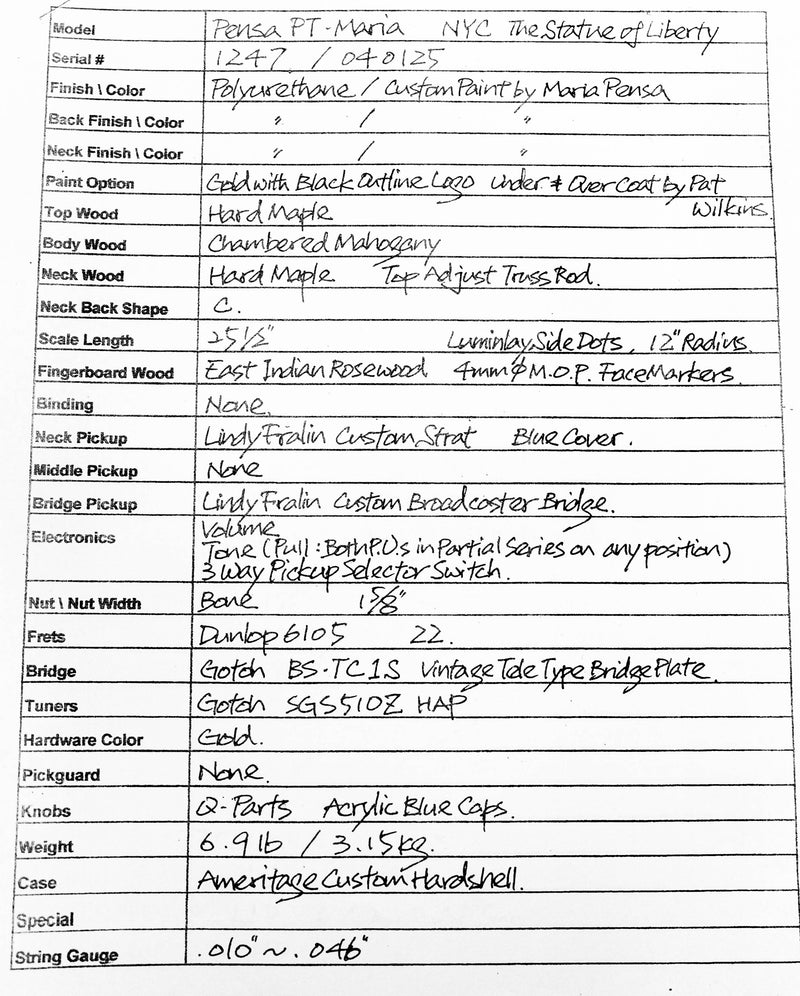 Model Pensa PT-Maria NYC The Statue of Liberty
Serial # 1247 / 040125
Finish \ Color Polyurethane / Custom Paint by Maria Pensa
Back Finish \ Color " / "
Neck Finish \ Color " / "
Paint Option Gold with Black Outline Logo Under & Over Coat by Pat
Wilkins.
Top Wood Hard Maple
Body Wood Chambered Mahogany
Neck Wood Hard Maple Top Adjust Truss Rod.
Neck Back Shape C.
Scale Length 25 1/2" Luminlay Side Dots, 12" Radius.
Fingerboard Wood East Indian Rosewood 4mmφ M.O.P. Face Markers.
Binding None.
Neck Pickup Lindy Fralin Custom Strat Blue Cover.
Middle Pickup None
Bridge Pickup Lindy Fralin Custom Broadcaster Bridge.
Electronics Volume
Tone (Pull : Both P.U.s in Partial Series on any position)
3 Way Pickup Selector Switch.
Nut \ Nut Width Bone 1 5/8"
Frets Dunlop 6105 22.
Bridge Gotoh BS-TC1S Vintage Tele Type Bridge Plate.
Tuners Gotoh SGS510Z HAP
Hardware Color Gold.
Pickguard None.
Knobs Q-Parts Acrylic Blue Caps.
Weight 6.9 lb / 3.15kg.
Case Ameritage Custom Hardshell.
Special
String Gauge .010" ~ .046"